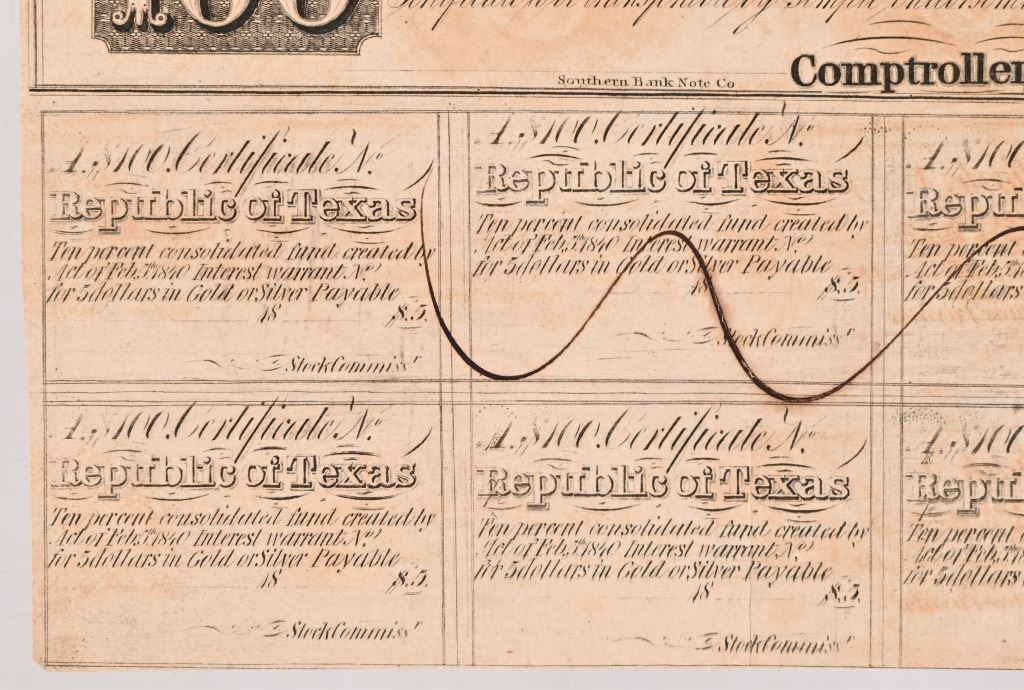 100
Certificate
Southern Bank Note Co
Comptroller
A. $100. Certificate No.
Republic of Texas
Ten percent consolidated fund created by
Act of Feb. 5th 1840 Interest warrant No.
for 5 dollars in Gold or Silver Payable
18 $5.
Stock Commissr
A. $100. Certificate No.
Republic of Texas
Ten percent consolidated fund created by
Act of Feb. 5th 1840 Interest warrant No.
for 5 dollars in Gold or Silver Payable
18 $5.
Stock Commissr
A. $100
Republ
Ten percent
Act of Feb. 5th 1
for 5 dollars
A. $100. Certificate No.
Republic of Texas
Ten percent consolidated fund created by
Act of Feb. 5th 1840 Interest warrant No.
for 5 dollars in Gold or Silver Payable
18 $5.
Stock Commissr
A. $100. Certificate No.
Republic of Texas
Ten percent consolidated fund created by
Act of Feb. 5th 1840 Interest warrant No.
for 5 dollars in Gold or Silver Payable
18 $5.
Stock Commissr
A. $100
Republ
Ten percent
Act of Feb. 5th 1
for 5 dollars